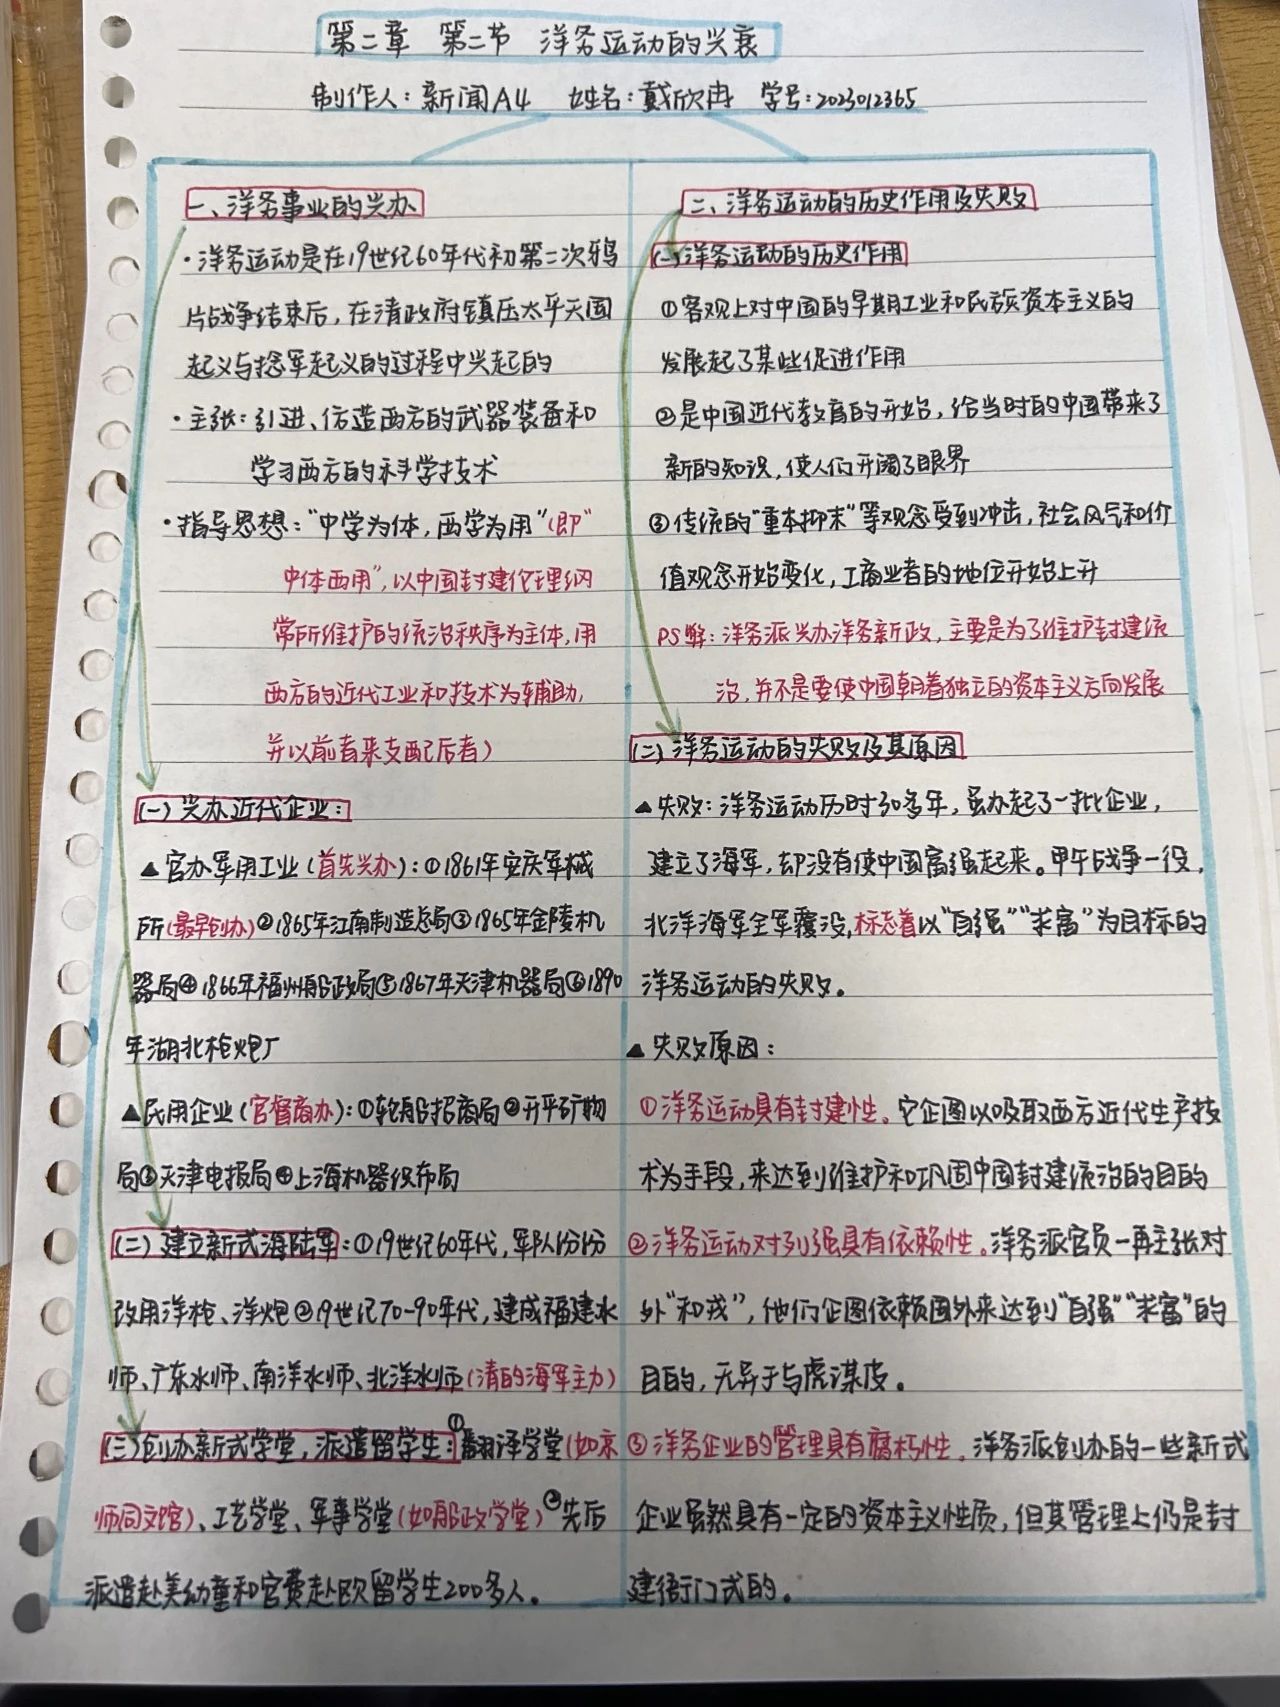 第二章 第二节 洋务运动的兴衰
制作人：新闻A4 姓名：戴欣冉 学号：2023012365
一、洋务事业的兴办
·洋务运动是在19世纪60年代初第二次鸦
片战争结束后，在清政府镇压太平天国
起义与捻军起义的过程中兴起的
·主张：引进、仿造西方的武器装备和
学习西方的科学技术
·指导思想："中学为体，西学为用"（即"
中体西用"，以中国封建伦理纲
常所维护的统治秩序为主体，用
西方的近代工业和技术为辅助，
并以前者来支配后者）
(一)兴办近代企业：
▲官办军用工业（首先兴办）：①1861年安庆军械
所（最早创办）②1865年江南制造总局③1865年金陵机
器局④1866年福州船政局⑤1867年天津机器局⑥1890
年湖北枪炮厂
▲民用企业（官督商办）：①轮船招商局②开平矿物
局③天津电报局④上海机器织布局
(二)建立新式海陆军：①19世纪60年代，军队纷纷
改用洋枪、洋炮②19世纪70-90年代，建成福建水
师、广东水师、南洋水师、北洋水师（清的海军主力）
(三)创办新式学堂，派遣留学生：①翻译学堂（如京
师同文馆）、工艺学堂、军事学堂（如船政学堂）②先后
派遣赴美幼童和官费赴欧留学生200多人。
二、洋务运动的历史作用及失败
(一)洋务运动的历史作用
①客观上对中国的早期工业和民族资本主义的
发展起了某些促进作用
②是中国近代教育的开始，给当时的中国带来了
新的知识，使人们开阔了眼界
③传统的"重本抑末"等观念受到冲击，社会风气和价
值观念开始变化，工商业者的地位开始上升
PS弊：洋务派兴办洋务新政，主要是为了维护封建统
治，并不是要使中国朝着独立的资本主义方向发展
(二)洋务运动的失败及其原因
▲失败：洋务运动历时30多年，虽办起了一批企业，
建立了海军，却没有使中国富强起来。甲午战争一役，
北洋海军全军覆没，标志着以"自强""求富"为目标的
洋务运动的失败。
▲失败原因：
①洋务运动具有封建性。它企图以吸取西方近代生产技
术为手段，来达到维护和巩固中国封建统治的目的
②洋务运动对列强具有依赖性。洋务派官员一再主张对
外"和戎"，他们企图依赖国外来达到"自强""求富"的
目的，无异于与虎谋皮。
③洋务企业的管理具有腐朽性。洋务派创办的一些新式
企业虽然具有一定的资本主义性质，但其管理上仍是封
建衙门式的。